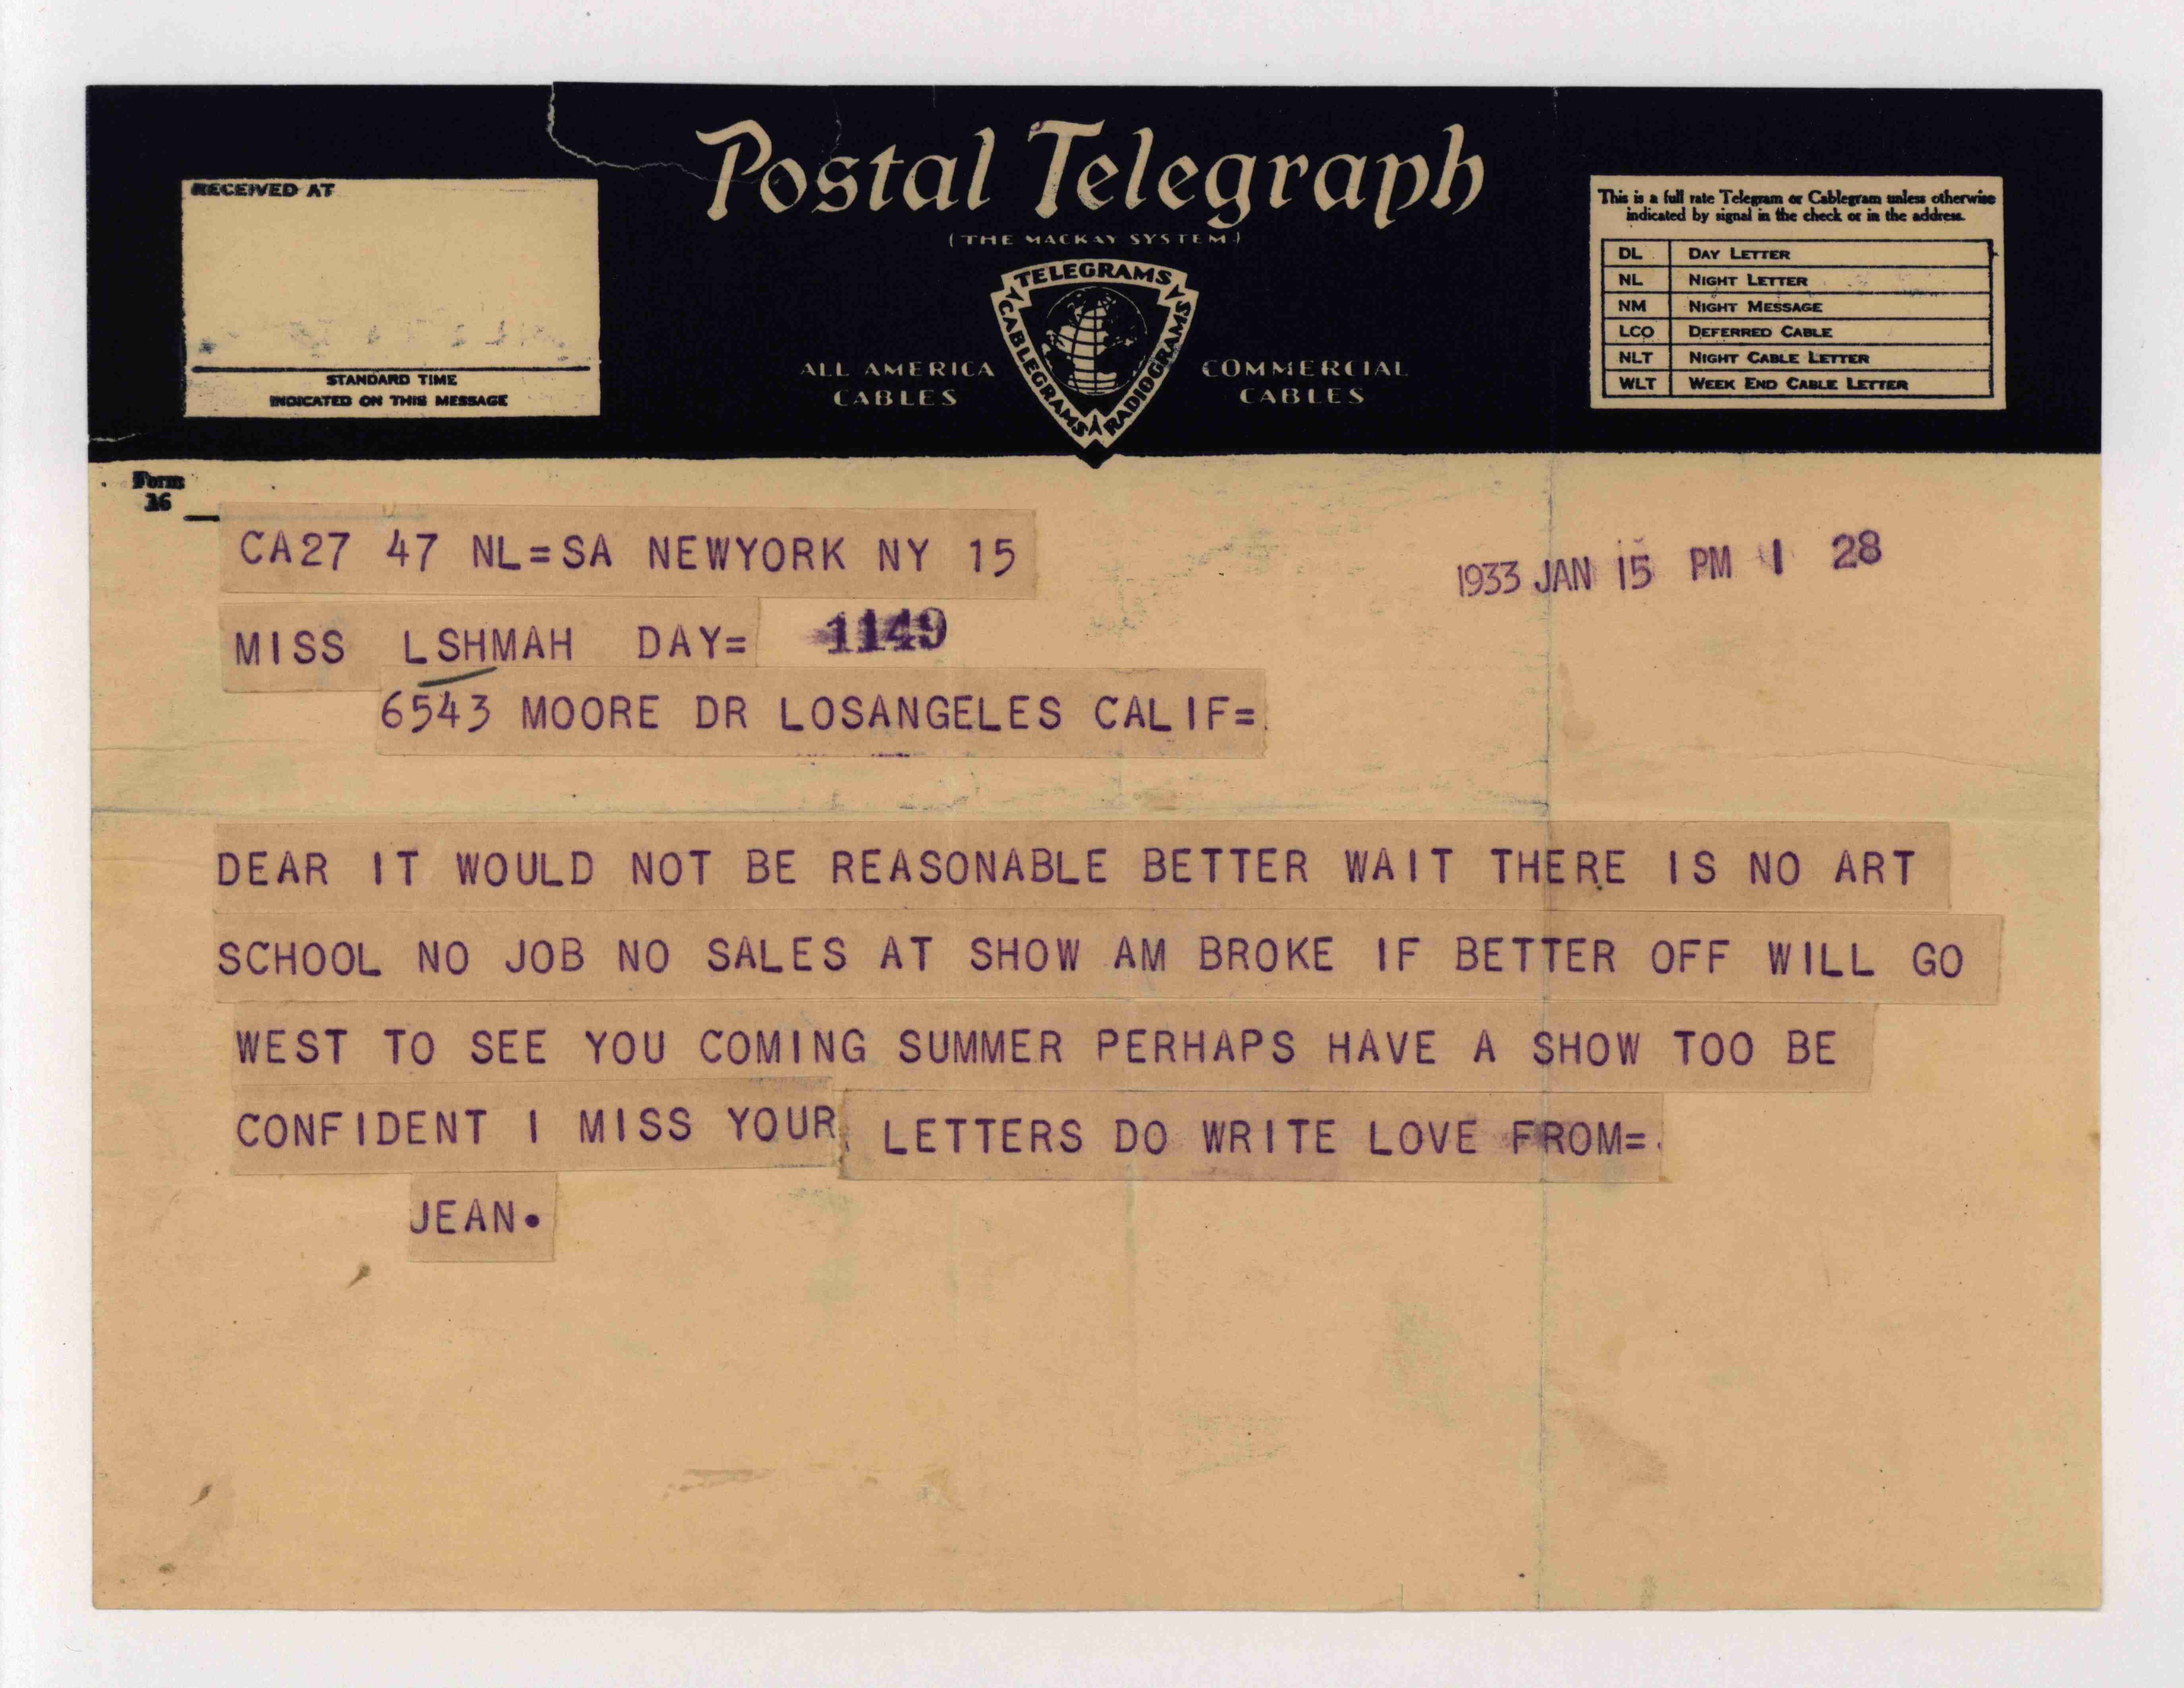 Postal Telegraph
(THE MACKAY SYSTEM)
RECEIVED AT
STANDARD TIME
INDICATED ON THIS MESSAGE
TELEGRAMS
CABLEGRAMS
RADIOGRAMS
ALL AMERICA
CABLES
COMMERCIAL
CABLES
This is a full rate Telegram or Cablegram unless otherwise
indicated by signal in the check or in the address.
DL DAY LETTER
NL NIGHT LETTER
NM NIGHT MESSAGE
LCO DEFERRED CABLE
NLT NIGHT CABLE LETTER
WLT WEEK END CABLE LETTER
Form
16
CA27 47 NL=SA NEWYORK NY 15
1933 JAN 15 PM 1 28
MISS LSHMAH DAY= 1149
6543 MOORE DR LOSANGELES CALIF=
DEAR IT WOULD NOT BE REASONABLE BETTER WAIT THERE IS NO ART
SCHOOL NO JOB NO SALES AT SHOW AM BROKE IF BETTER OFF WILL GO
WEST TO SEE YOU COMING SUMMER PERHAPS HAVE A SHOW TOO BE
CONFIDENT I MISS YOUR LETTERS DO WRITE LOVE FROM=
JEAN.